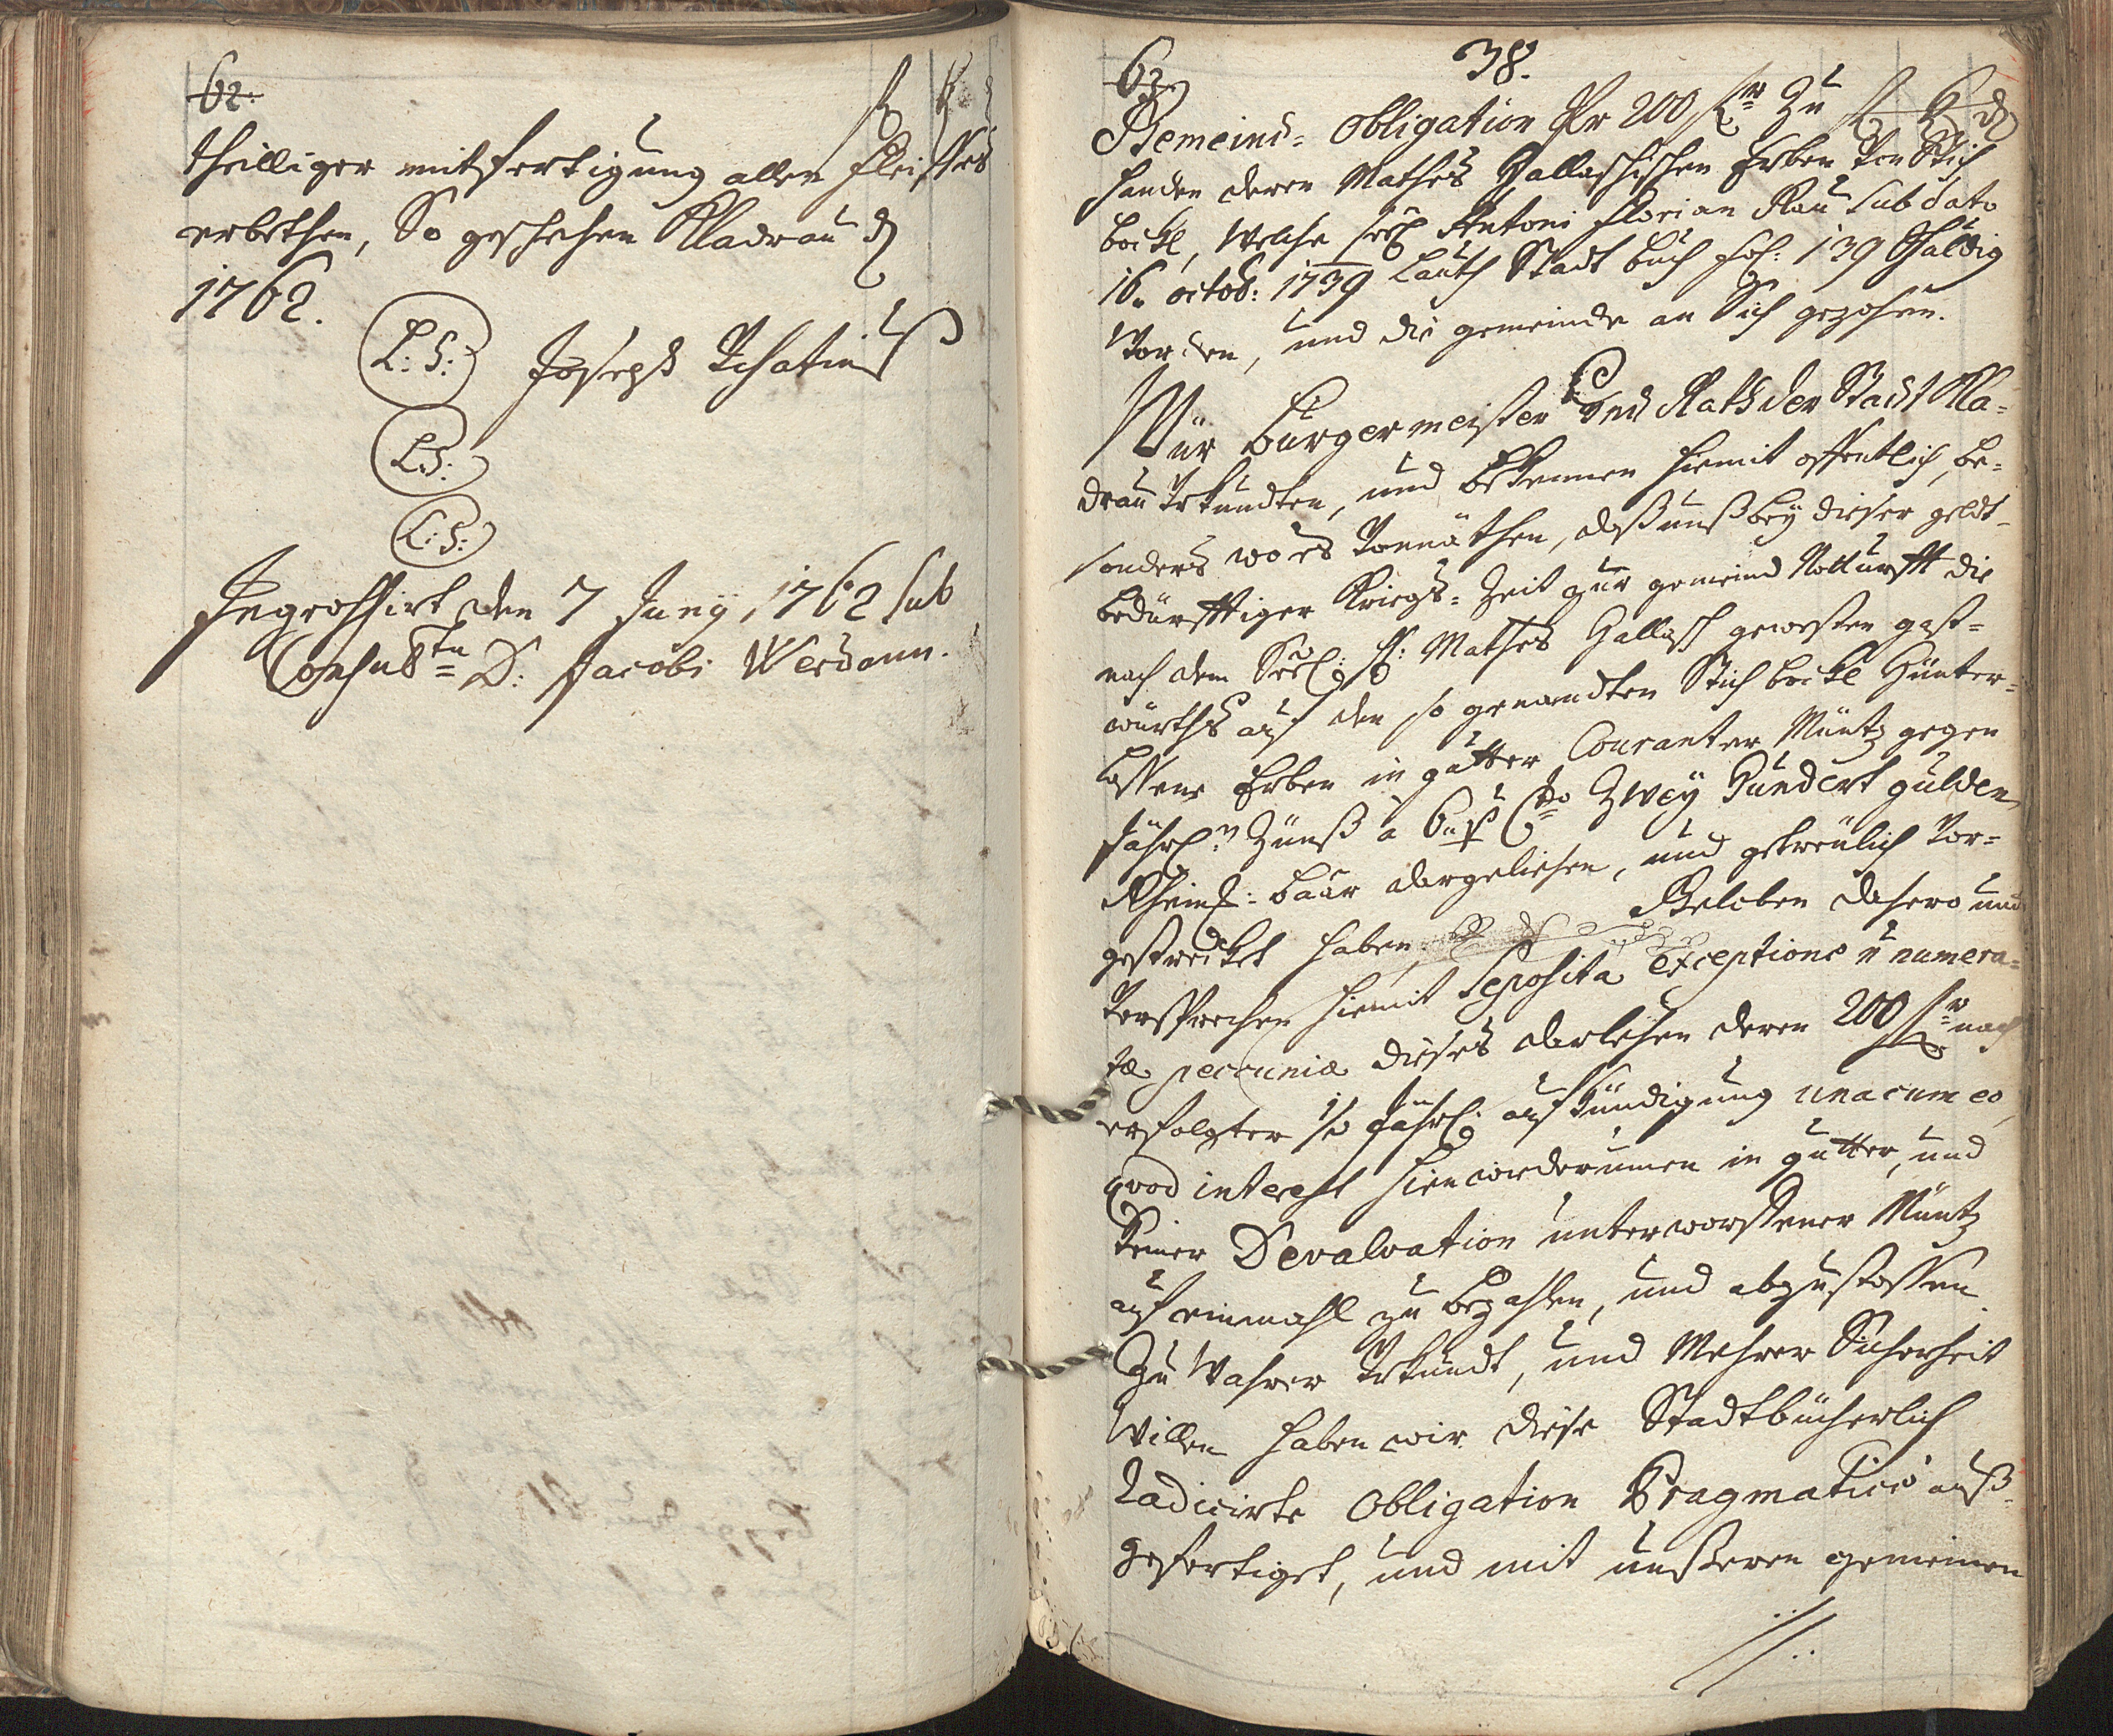 62.
f x
theilliger mitfertigung allen Fleisses
erbethen, So geschehen Kladrau d
1762.
L: S: Joseph Ignatius
L. S:
L: S:
Ingrossirt den 7 Juny 1762 sub
Consultu D: Jacobi Werdann.
63.
38.
Gemeind-Obligation Pr 200 fr zu f x d
handen deren Mathes Gallaschischen Erben von Stich
böckl, welche seel Antoni Florian Rau sub dato
16. octob: 1739 lauth Stadt buch fol: 139 schuldig
worden, und die gemeinde an Sich gezohen.
Wür burgermeister und Rath der Stadt Kla-
drau Urkundten, und bekennen hiemit offentlich, be-
sonders wo es vonnöthen, daß unß bey dieser geldt-
bedürfftiger Kriegs-Zeit zur gemeind Notturfft die
nach dem Seel: H: Mathes Gallasch gewesten gast-
würths auf den so genandten Stich böckl Hünter-
lassene Erben in gutter Couranter Müntz gegen
Jährl: Zünß à 6 p Cto Zwey Hundert gulden
Rheinl: baar dargeliehen, und getreulich vor-
gestrecket haben, Geloben dahero und
versprechen hiemit Seposita exceptione n numera-
tæ pecuniæ dieses darlehen deren 200 fr nach
erfolgter 1/2 Jährl: aufkündigung una cum eo,
qvod interest hinwiderumen in gutter, und
keiner Devalvation unterworffener Müntz
auf einmahl zu bezahlen, und abzustossen.
Zu wahrer Urkundt, und Mehrer Sicherheit
willen haben wir diese Stadtbücherlich
radicirte Obligation Pragmaticè auß-
gefertiget, und mit unßeren gemeinen
//.